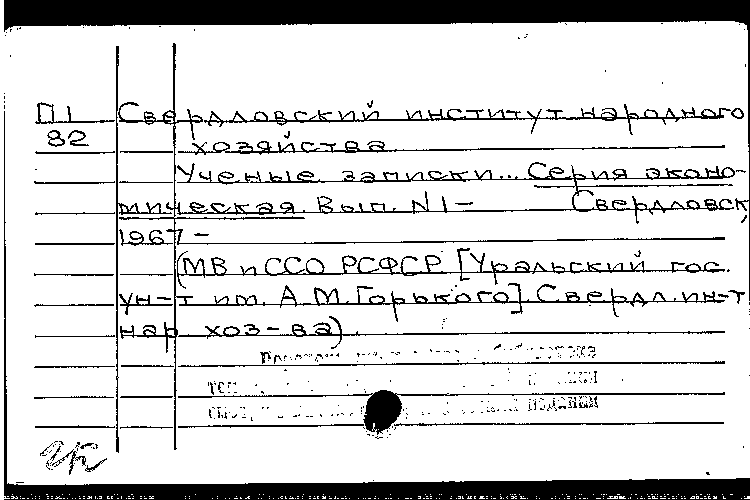 П1 Свердловский институт народного
82 хозяйства.
Ученые записки... Серия эконо-
мическая. Вып. N1 — Свердловск,
1967 —
(МВ и ССО РСФСР [Уральский гос.
ун-т им. А.М. Горького]. Свердл. ин-т
нар хоз-ва).
изданий